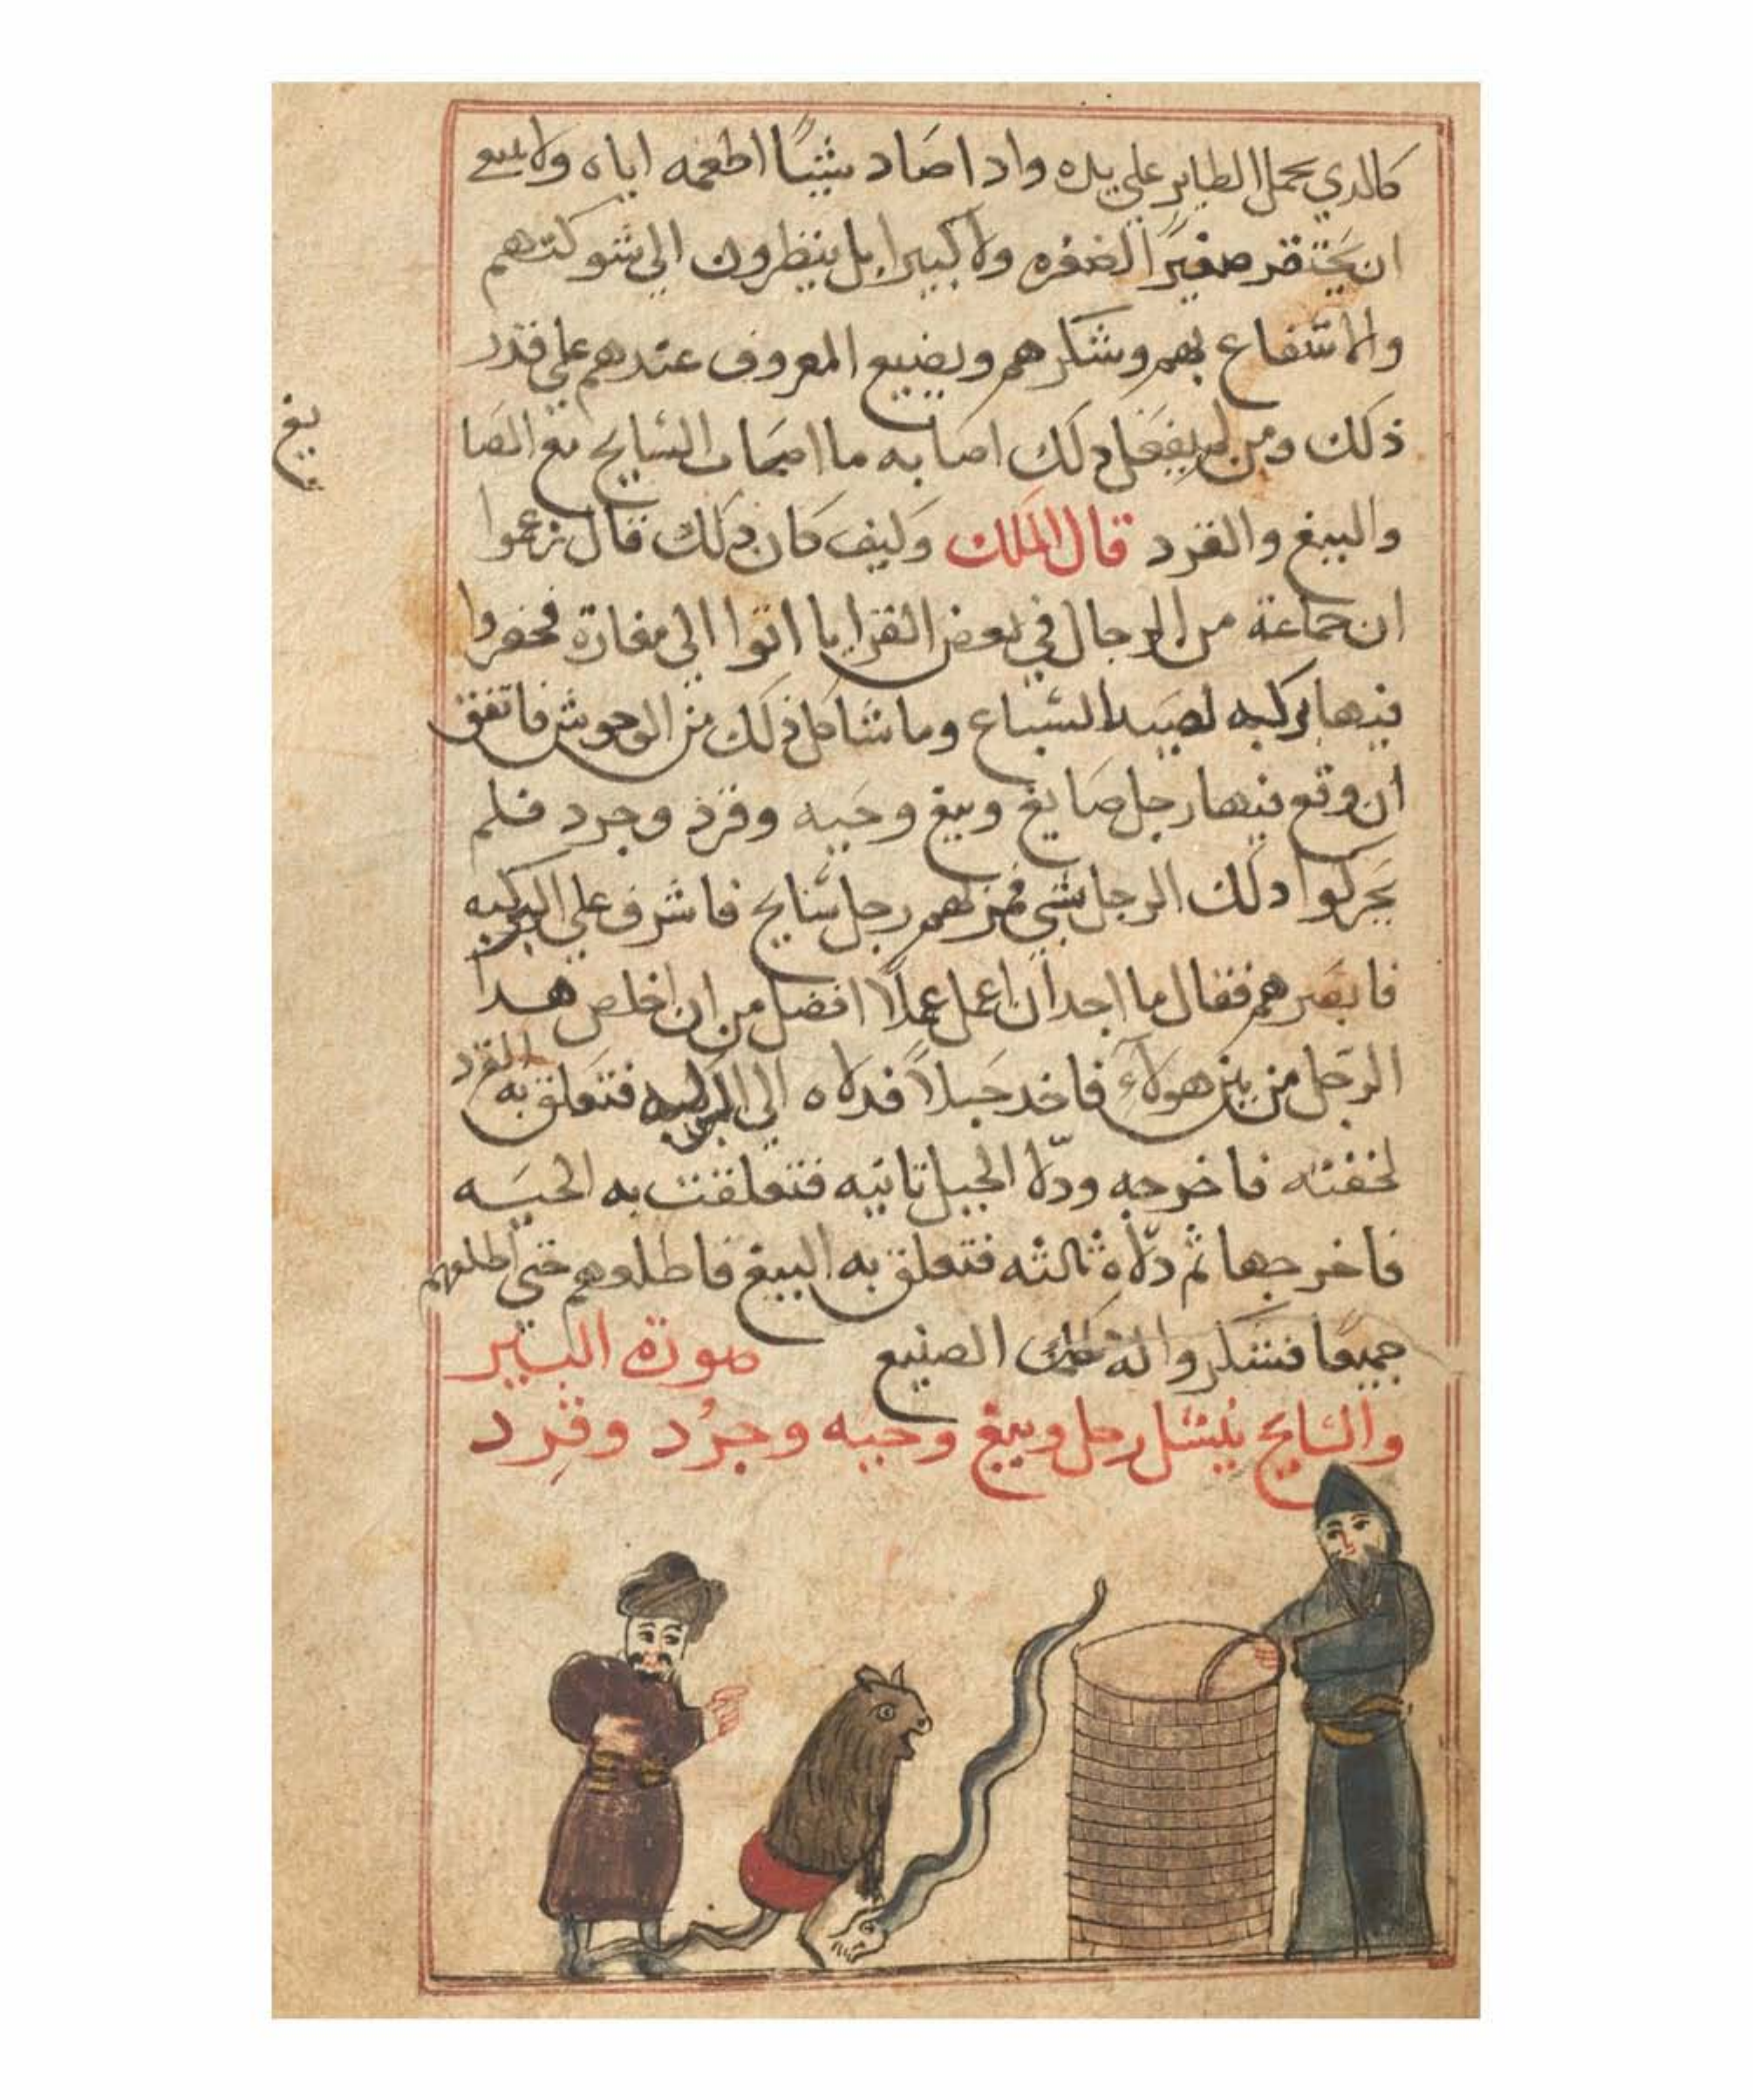 كالدي يحمل الطاير علي يده واداصاد شيًا اطعمه اياه ولا ينبغي
ان يحتقر صغيرًا لصغره ولا كبيرا بل ينظرون الي شوكتهم
والانتفاع بهم وشكرهم ويضيع المعروف عندهم علي قدر
ذلك ومن لم يفعل دلك اصابه ما اصاب السايح مع الصا
يغ
والببغ والقرد قال الملك وكيف كان دلك قال زعموا
ان جماعة من الرجال في بعض القرايا اتوا الي مغارة فحفروا
فيها لصيد السباع وما شاكل ذلك من الوحوش فاتفق
ان وقع فيها رجل صايغ وببغ وحيه وقرد وجرد فلم
يحركوا دلك الرجل بشي فمر بهم رجل سايح فاشرف علي الركيه
فابصرهم فقال ما اجد ان اعمل عملًا افضل من ان اخلص هدا
الرجل من بين هولآءِ فاخد حبلاً فدلاه الي فتعلق به القرد
لخفته فاخرجه ودلّا الحبل تانيه فتعلقت به الحيه
فاخرجها ثم دلّاه ثالثه فتعلق به الببغ فاطلعوهم حتي اطلعهم
جميعًا فشكروا له الصنيع صورة البير
والسايح ينشل رجل وببغ وحيه وجرُد وقرد